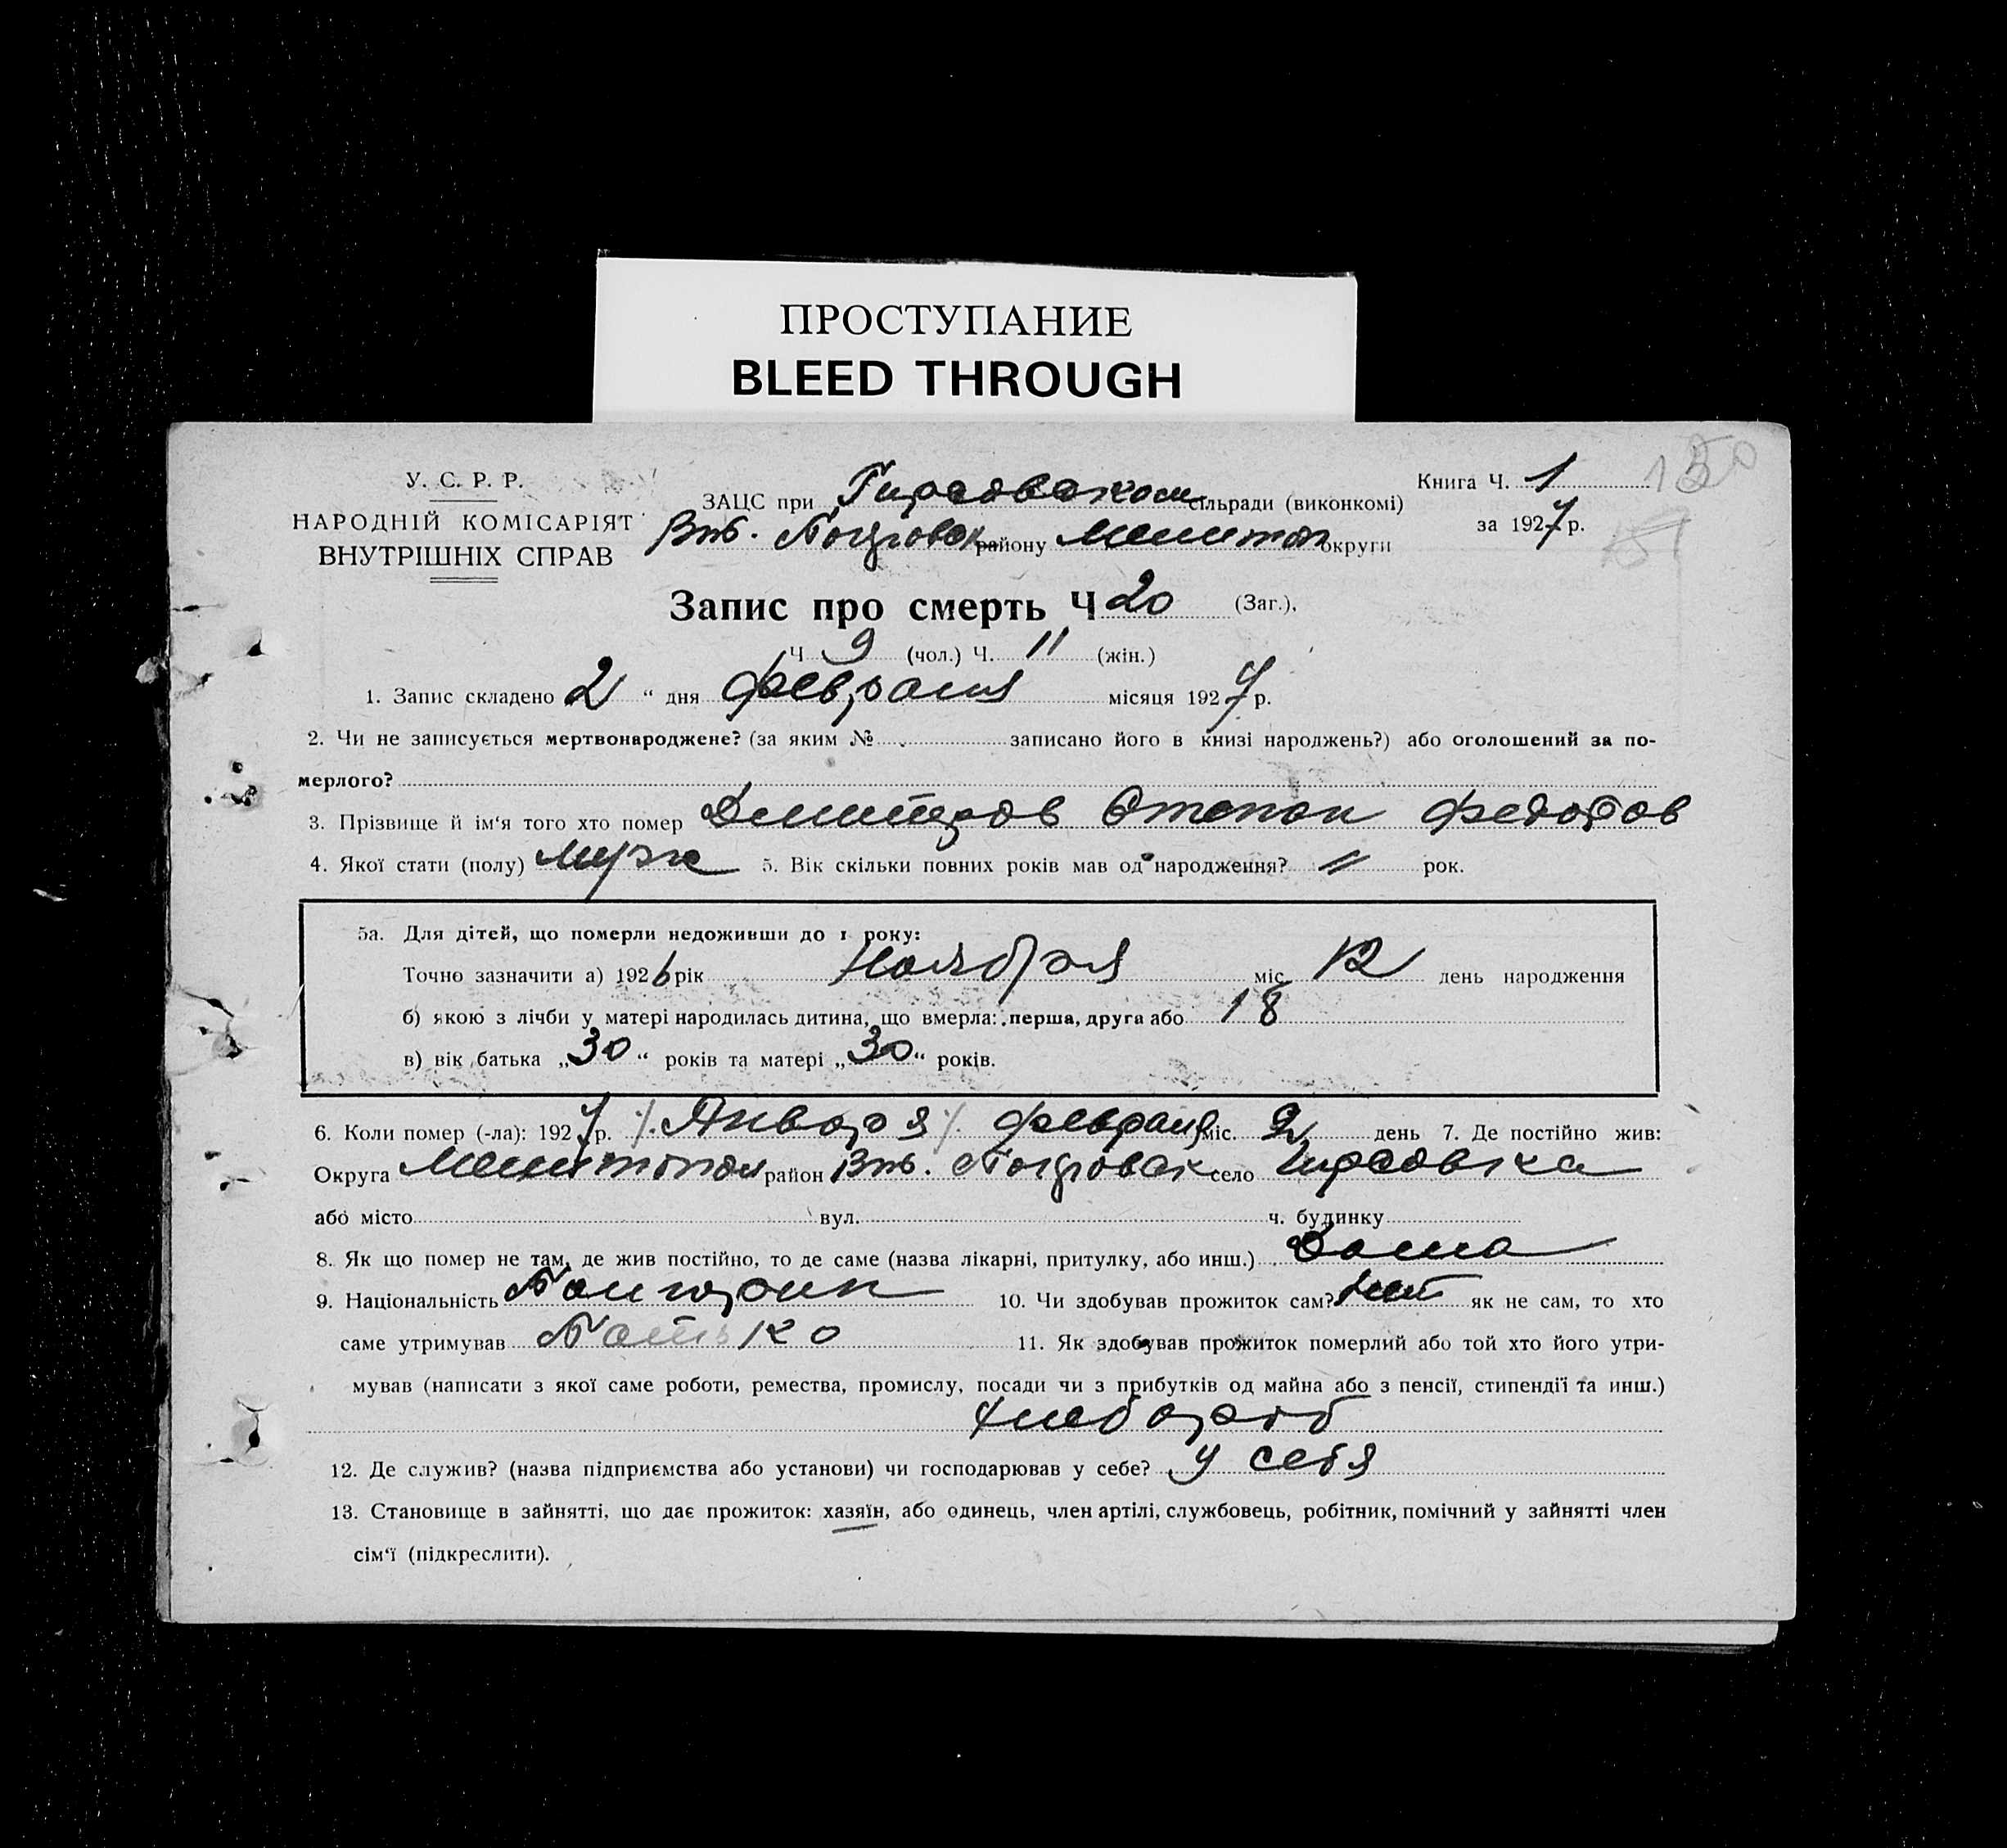 ПРОСТУПАНИЕ
BLEED THROUGH
У. С. Р. Р.
НАРОДНІЙ КОМІСАРІЯТ
ВНУТРІШНІХ СПРАВ
ЗАЦС при Гирсовском сільради (виконкомі)
району Мелитоп округи
Книга Ч. 1
за 1927 р.
Запис про смерть Ч 20 (Заг.),
Ч 9 (чол.) Ч. 11 (жін.)
1. Запис складено 2 “ дня февраля місяця 1927 р.
2. Чи не записується мертвонароджене? (за яким № записано його в книзі народжень?) або оголошений за по-
мерлого?
3. Прізвище й ім‘я того хто помер Димитров Степан Федоров
4. Якої стати (полу) Мужс 5. Вік скільки повних років мав од народження? // рок.
5а. Для дітей, що померли недоживши до 1 року:
Точно зазначити а) 1926 рік Ноября міс. 12 день народження
б) якою з лічби у матері народилась дитина, що вмерла: перша, друга або 18
в) вік батька „30“ років та матері „30“ років.
6. Коли помер (-ла): 1927 р. /. Января /. февраля міс. 2 день 7. Де постійно жив:
Округа Мелитопол район село Гирсовка
або місто вул. ч. будинку
8. Як що помер не там, де жив постійно, то де саме (назва лікарні, притулку, або инш.) Дома
9. Національність Болгарин 10. Чи здобував прожиток сам? Нет як не сам, то хто
саме утримував Батько 11. Як здобував прожиток померлий або той хто його утри-
мував (написати з якої саме роботи, ремества, промислу, посади чи з прибутків од майна або з пенсії, стипендії та инш.)
Хлебороб
12. Де служив? (назва підприємства або установи) чи господарював у себе? У себя
13. Становище в зайнятті, що дає прожиток: хазяїн, або одинець, член артілі, службовець, робітник, помічний у зайнятті член
сім‘ї (підкреслити).